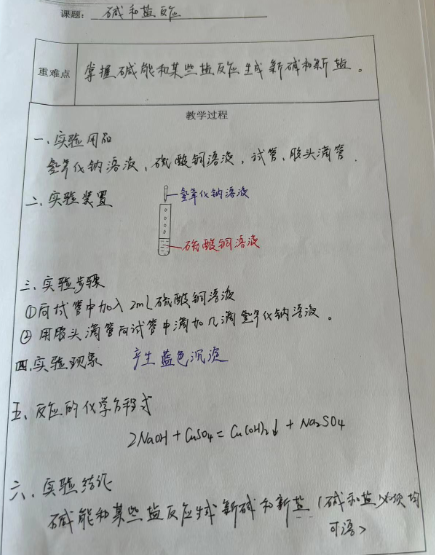 课题： 碱和盐反应
重难点 掌握碱能和某些盐反应生成新碱和新盐。
教学过程
一、实验用品
氢氧化钠溶液，硫酸铜溶液，试管、胶头滴管
二、实验装置
氢氧化钠溶液
硫酸铜溶液
三、实验步骤
①向试管中加入2mL硫酸铜溶液
②用胶头滴管向试管中滴加几滴氢氧化钠溶液。
四、实验现象 产生蓝色沉淀
五、反应的化学方程式
2NaOH + CuSO4 = Cu(OH)2↓ + Na2SO4
六、实验结论
碱能和某些盐反应生成新碱和新盐（碱和盐必须均
可溶）